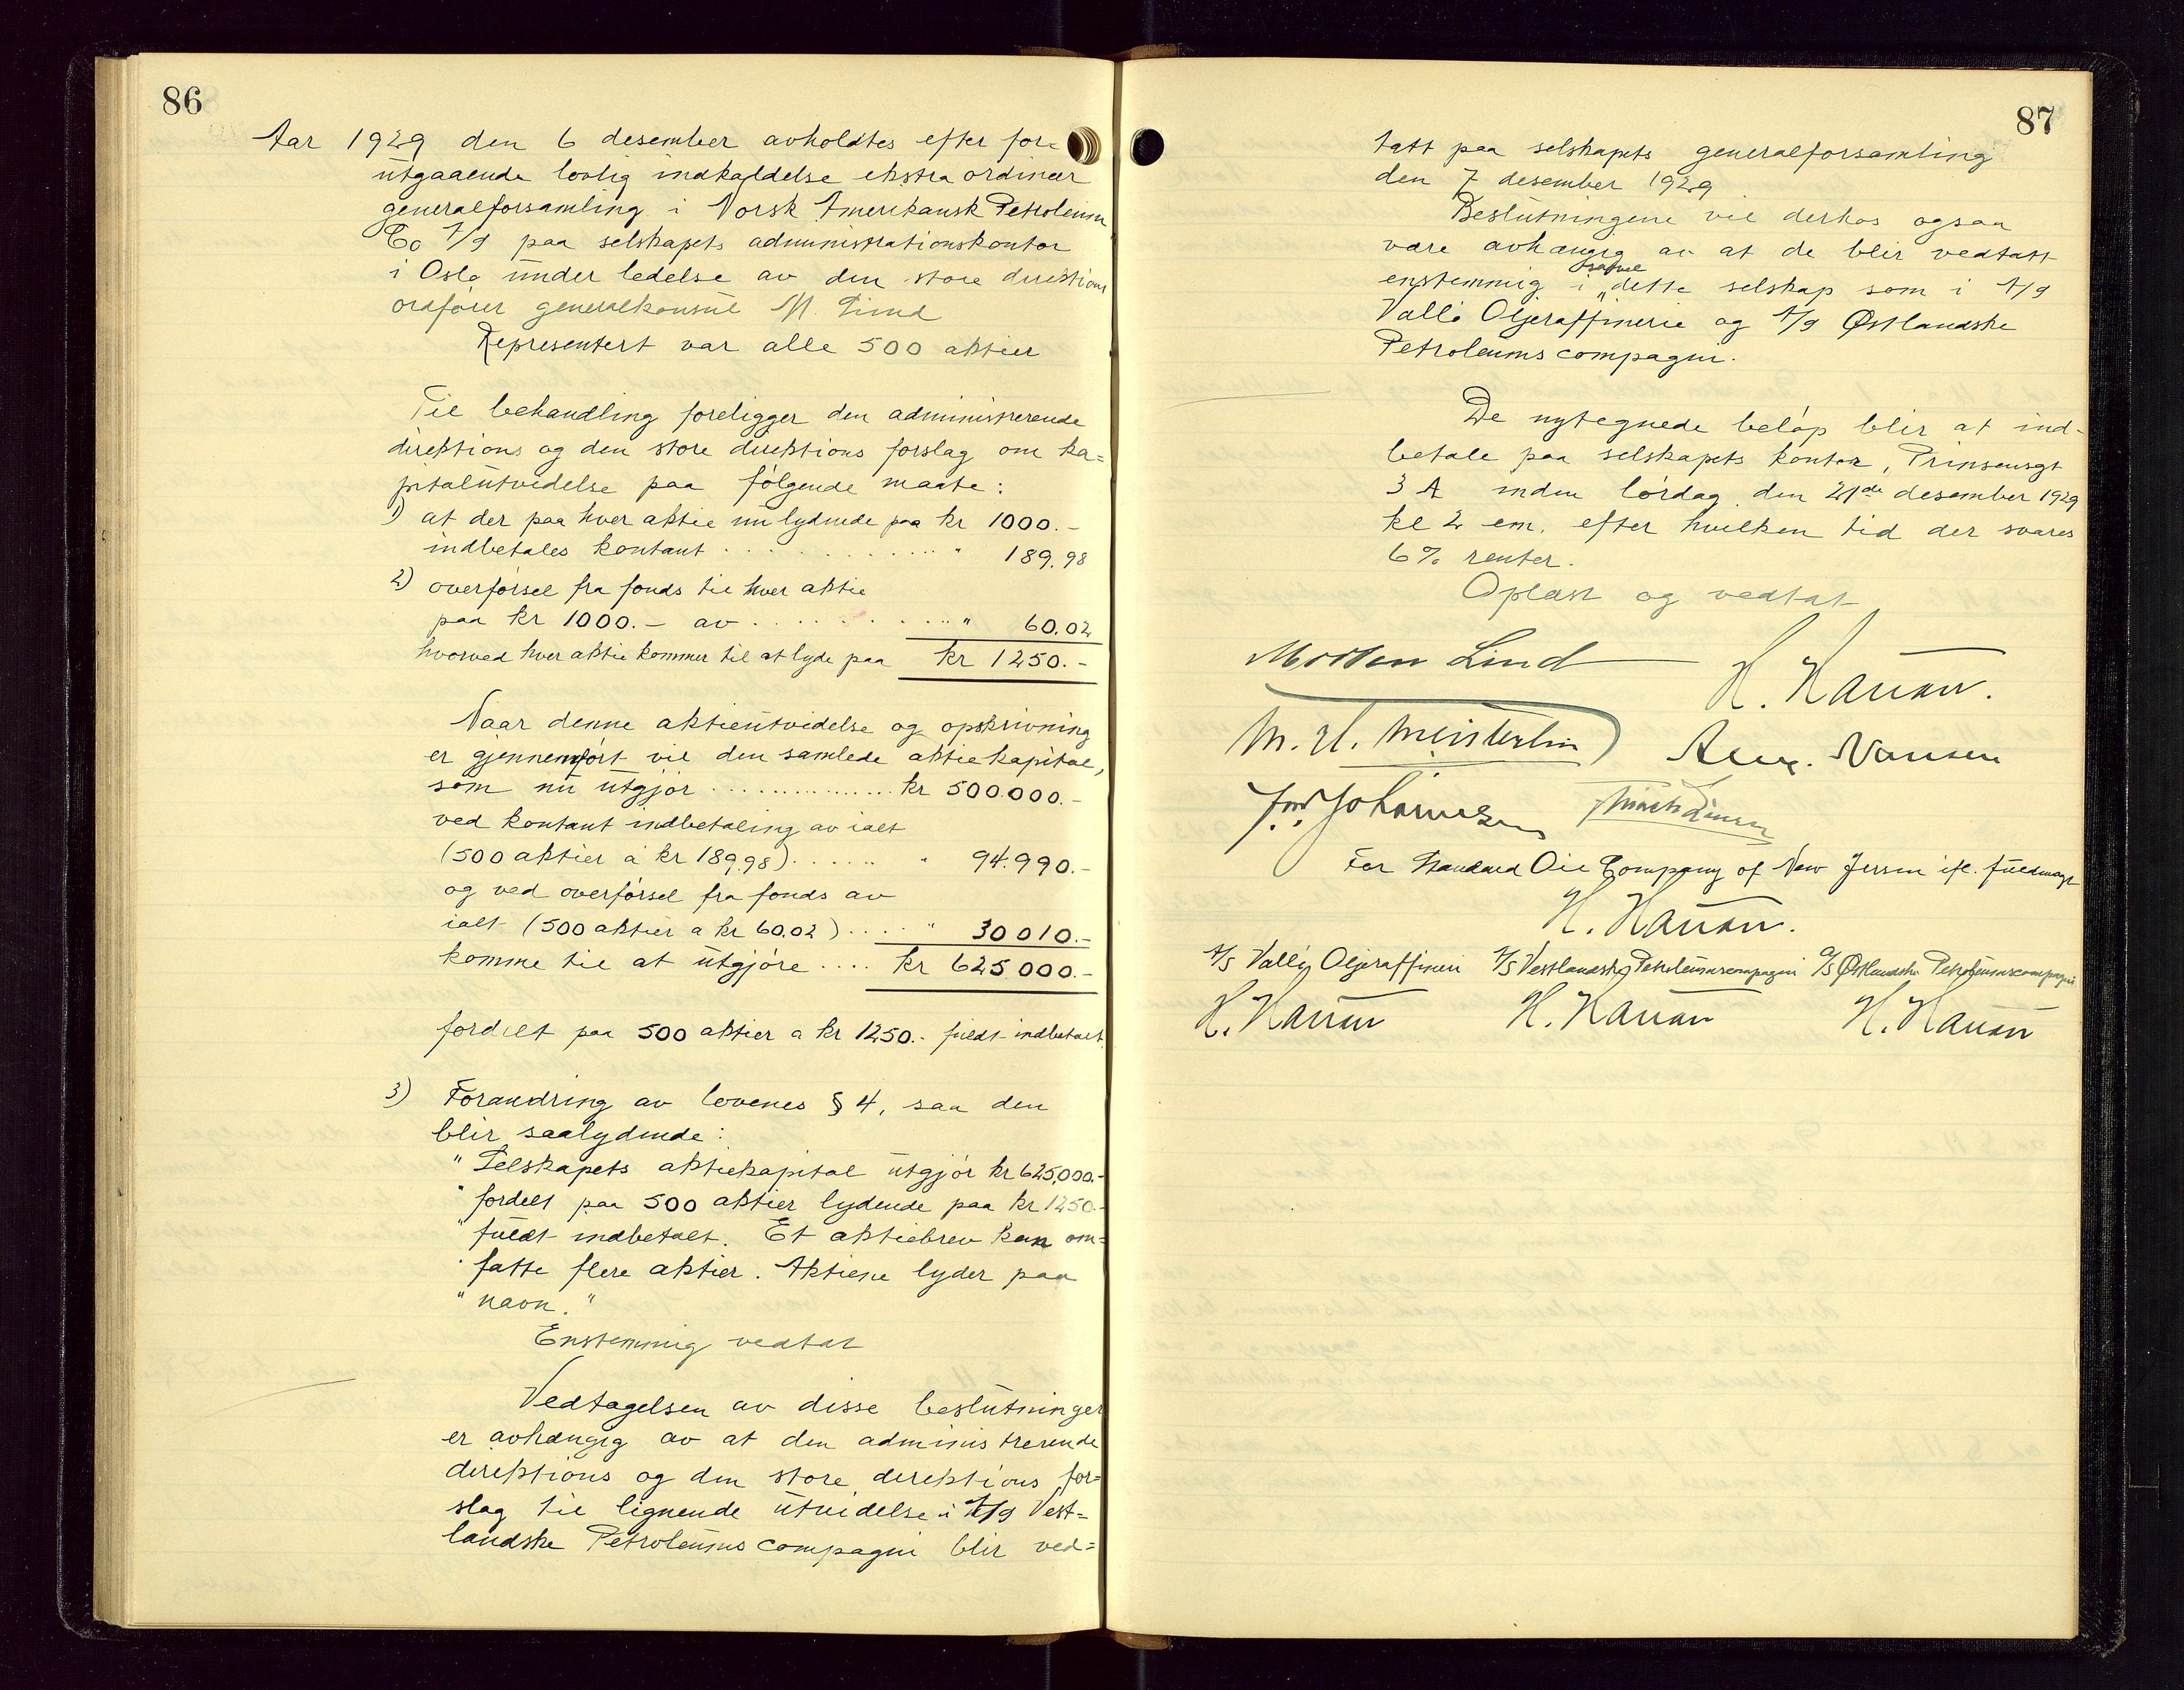 86
Aar 1929 den 6 desember avholdtes efter for-
utgaaende lovlig indkaldelse ekstra ordinær
generalforsamling i Norsk Amerikansk Petroleum
Co A/S paa selskapets administrationskontor
i Oslo under ledelse av den store direktions
ordfører generalkonsul M. Lind
Representert var alle 500 aktier
Til behandling foreligger den administrerende
direktions og den store direktions forslag om ka=
pitalutvidelse paa følgende maate:
1) at der paa hver aktie nu lydende paa kr 1000.-
indbetales kontant . . . . . . . . . . . " 189.98
2) overførsel fra fonds til hver aktie
paa kr 1000.- av . . . . . . . . . " 60.02
hvorved hver aktie kommer til at lyde paa kr 1250.-
Naar denne aktieutvidelse og opskrivning
er gjennemført vil den samlede aktiekapital,
som nu utgjør . . . . . . . . . . kr 500.000.-
ved kontant indbetaling av ialt
(500 aktier á kr 189.98) . . . . . . " 94.990.-
og ved overførsel fra fonds av
ialt (500 aktier a kr 60.02) . . . . " 30010.-
komme til at utgjøre . . . . kr 625000.-
fordelt paa 500 aktier a kr 1250.- fuldt indbetalt.
3) Forandring av lovenes § 4, saa den
blir saalydende:
" Selskapets aktiekapital utgjør kr 625,000.-
" fordelt paa 500 aktier lydende paa kr 1250.-
" fuldt indbetalt. Et aktiebrev kan om=
" fatte flere aktier. Aktiene lyder paa
" navn."
Enstemmig vedtat
Vedtagelsen av disse beslutninger
er avhængig av at den administrerende
direktions og den store direktions for=
slag til lignende utvidelse i A/S Vest=
landske Petroleumscompagni blir ved=
87
tatt paa selskapets generalforsamling
den 7 desember 1929
Beslutningene vil derhos ogsaa
være avhængig av at de blir vedtatt
enstemmig i saavel dette selskap som i A/S
Valló Oljeraffineri og A/S Østlandske
Petroleumscompagni.
De nytegnede beløp blir at ind-
betale paa selskapets kontor, Prinsensgt
3 A inden lørdag den 21de desember 1929
kl 2 em. efter hvilken tid der svares
6% renter.
Oplæst og vedtat
Morten Lind
H. Hansen.
Aug. Nansen
Johannesen
For Standard Oil Company of New Jersey ifl. fuldmagt
H. Hansen.
A/S Vallø Oljeraffineri A/S Vestlandske Petroleumscompagni A/S Østlandske Petroleumscompagni
H. Hansen H. Hansen H. Hansen